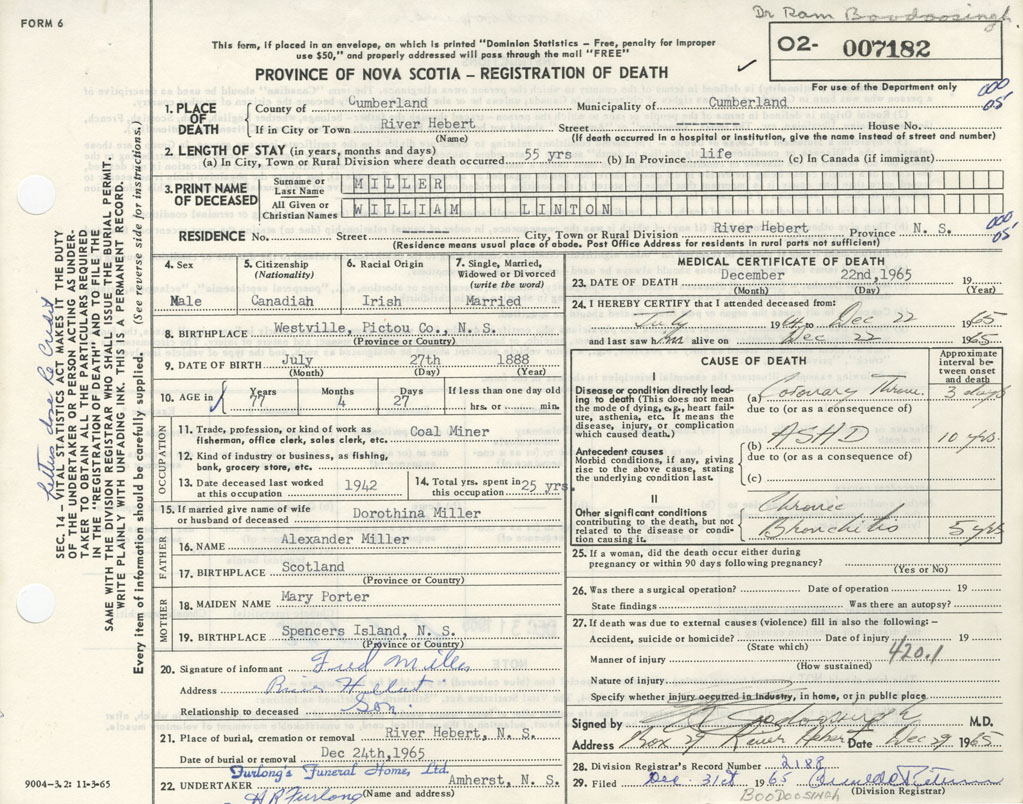 FORM 6
Dr Ram Boodoosingh
This form, if placed in an envelope, on which is printed "Dominion Statistics – Free, penalty for improper
use $50," and properly addressed will pass through the mail "FREE"
O2- 007182
PROVINCE OF NOVA SCOTIA – REGISTRATION OF DEATH
For use of the Department only
000
05
1. PLACE OF DEATH
County of Cumberland Municipality of Cumberland
If in City or Town River Hebert Street -------- House No.
(Name) (If death occurred in a hospital or institution, give the name instead of street and number)
2. LENGTH OF STAY (in years, months and days)
(a) In City, Town or Rural Division where death occurred 55 yrs (b) In Province life (c) In Canada (if immigrant)
3. PRINT NAME OF DECEASED
Surname or Last Name MILLER
All Given or Christian Names WILLIAM LINTON
RESIDENCE No. Street -------- City, Town or Rural Division River Hebert Province N. S.
000
05
(Residence means usual place of abode. Post Office Address for residents in rural parts not sufficient)
4. Sex
Male
5. Citizenship (Nationality)
Canadiah
6. Racial Origin
Irish
7. Single, Married, Widowed or Divorced (write the word)
Married
8. BIRTHPLACE Westville, Pictou Co., N. S.
(Province or Country)
9. DATE OF BIRTH July 27th 1888
(Month) (Day) (Year)
10. AGE in
Years Months Days If less than one day old
77 4 27 hrs. or min.
OCCUPATION
11. Trade, profession, or kind of work as
fisherman, office clerk, sales clerk, etc. Coal Miner
12. Kind of industry or business, as fishing,
bank, grocery store, etc.
13. Date deceased last worked
at this occupation 1942
14. Total yrs. spent in
this occupation 25 yrs.
15. If married give name of wife
or husband of deceased Dorothina Miller
FATHER
16. NAME Alexander Miller
17. BIRTHPLACE Scotland
(Province or Country)
MOTHER
18. MAIDEN NAME Mary Porter
19. BIRTHPLACE Spencers Island, N. S.
(Province or Country)
20. Signature of informant Fred Miller
Address River Hebert
Relationship to deceased Son.
21. Place of burial, cremation or removal River Hebert, N. S.
Date of burial or removal Dec 24th,1965
Furlong's Funeral Home, Ltd.
22. UNDERTAKER Amherst, N. S.
H R Furlong (Name and address)
MEDICAL CERTIFICATE OF DEATH
23. DATE OF DEATH December 22nd,1965 19
(Month) (Day) (Year)
24. I HEREBY CERTIFY that I attended deceased from:
July 1964 to Dec 22 1965
and last saw him alive on Dec 22 1965
CAUSE OF DEATH
Approximate interval between onset and death
I
Disease or condition directly leading to death (This does not mean the mode of dying, e.g., heart failure, asthenia, etc. It means the disease, injury, or complication which caused death.)
(a) Coronary Throm 3 days
due to (or as a consequence of)
Antecedent causes
Morbid conditions, if any, giving rise to the above cause, stating the underlying condition last.
(b) ASHD 10 yrs.
due to (or as a consequence of)
(c)
II
Other significant conditions
contributing to the death, but not related to the disease or condition causing it.
Chronic
Bronchitis 5 yrs
25. If a woman, did the death occur either during
pregnancy or within 90 days following pregnancy?
(Yes or No)
26. Was there a surgical operation? Date of operation 19
State findings Was there an autopsy?
27. If death was due to external causes (violence) fill in also the following: –
Accident, suicide or homicide? Date of injury 19
(State which)
420.1
Manner of injury
(How sustained)
Nature of injury
Specify whether injury occurred in industry, in home, or in public place
Signed by Boodoosingh M.D.
Address Box 29 River Hebert Date Dec 29 1965
28. Division Registrar's Record Number 2188
29. Filed Dec. 31st 1965
(Division Registrar)
BOODOOSINGH
SEC. 14 – VITAL STATISTICS ACT MAKES IT THE DUTY
OF THE UNDERTAKER OR PERSON ACTING AS UNDER-
TAKER TO OBTAIN ALL THE PARTICULARS REQUIRED
IN THE "REGISTRATION OF DEATH" AND TO FILE THE
SAME WITH THE DIVISION REGISTRAR WHO SHALL ISSUE THE BURIAL PERMIT.
WRITE PLAINLY WITH UNFADING INK. THIS IS A PERMANENT RECORD.
Every item of information should be carefully supplied. (See reverse side for instructions.)
9004-3.2: 11-3-65